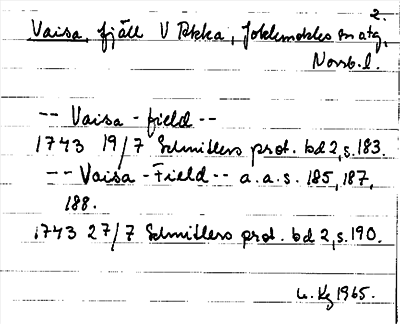 2.
Vaisa, fjäll V Pkka, Jokkmokks sn o tg,
Norrb. l.
-- Vaisa - field --
1743 19/7 Schnitlers prot. bd 2, s. 183.
-- Vaisa - Field -- a. a. s. 185, 187,
188.
1743 27/7 Schnitlers prot. bd 2, s. 190.
1965.